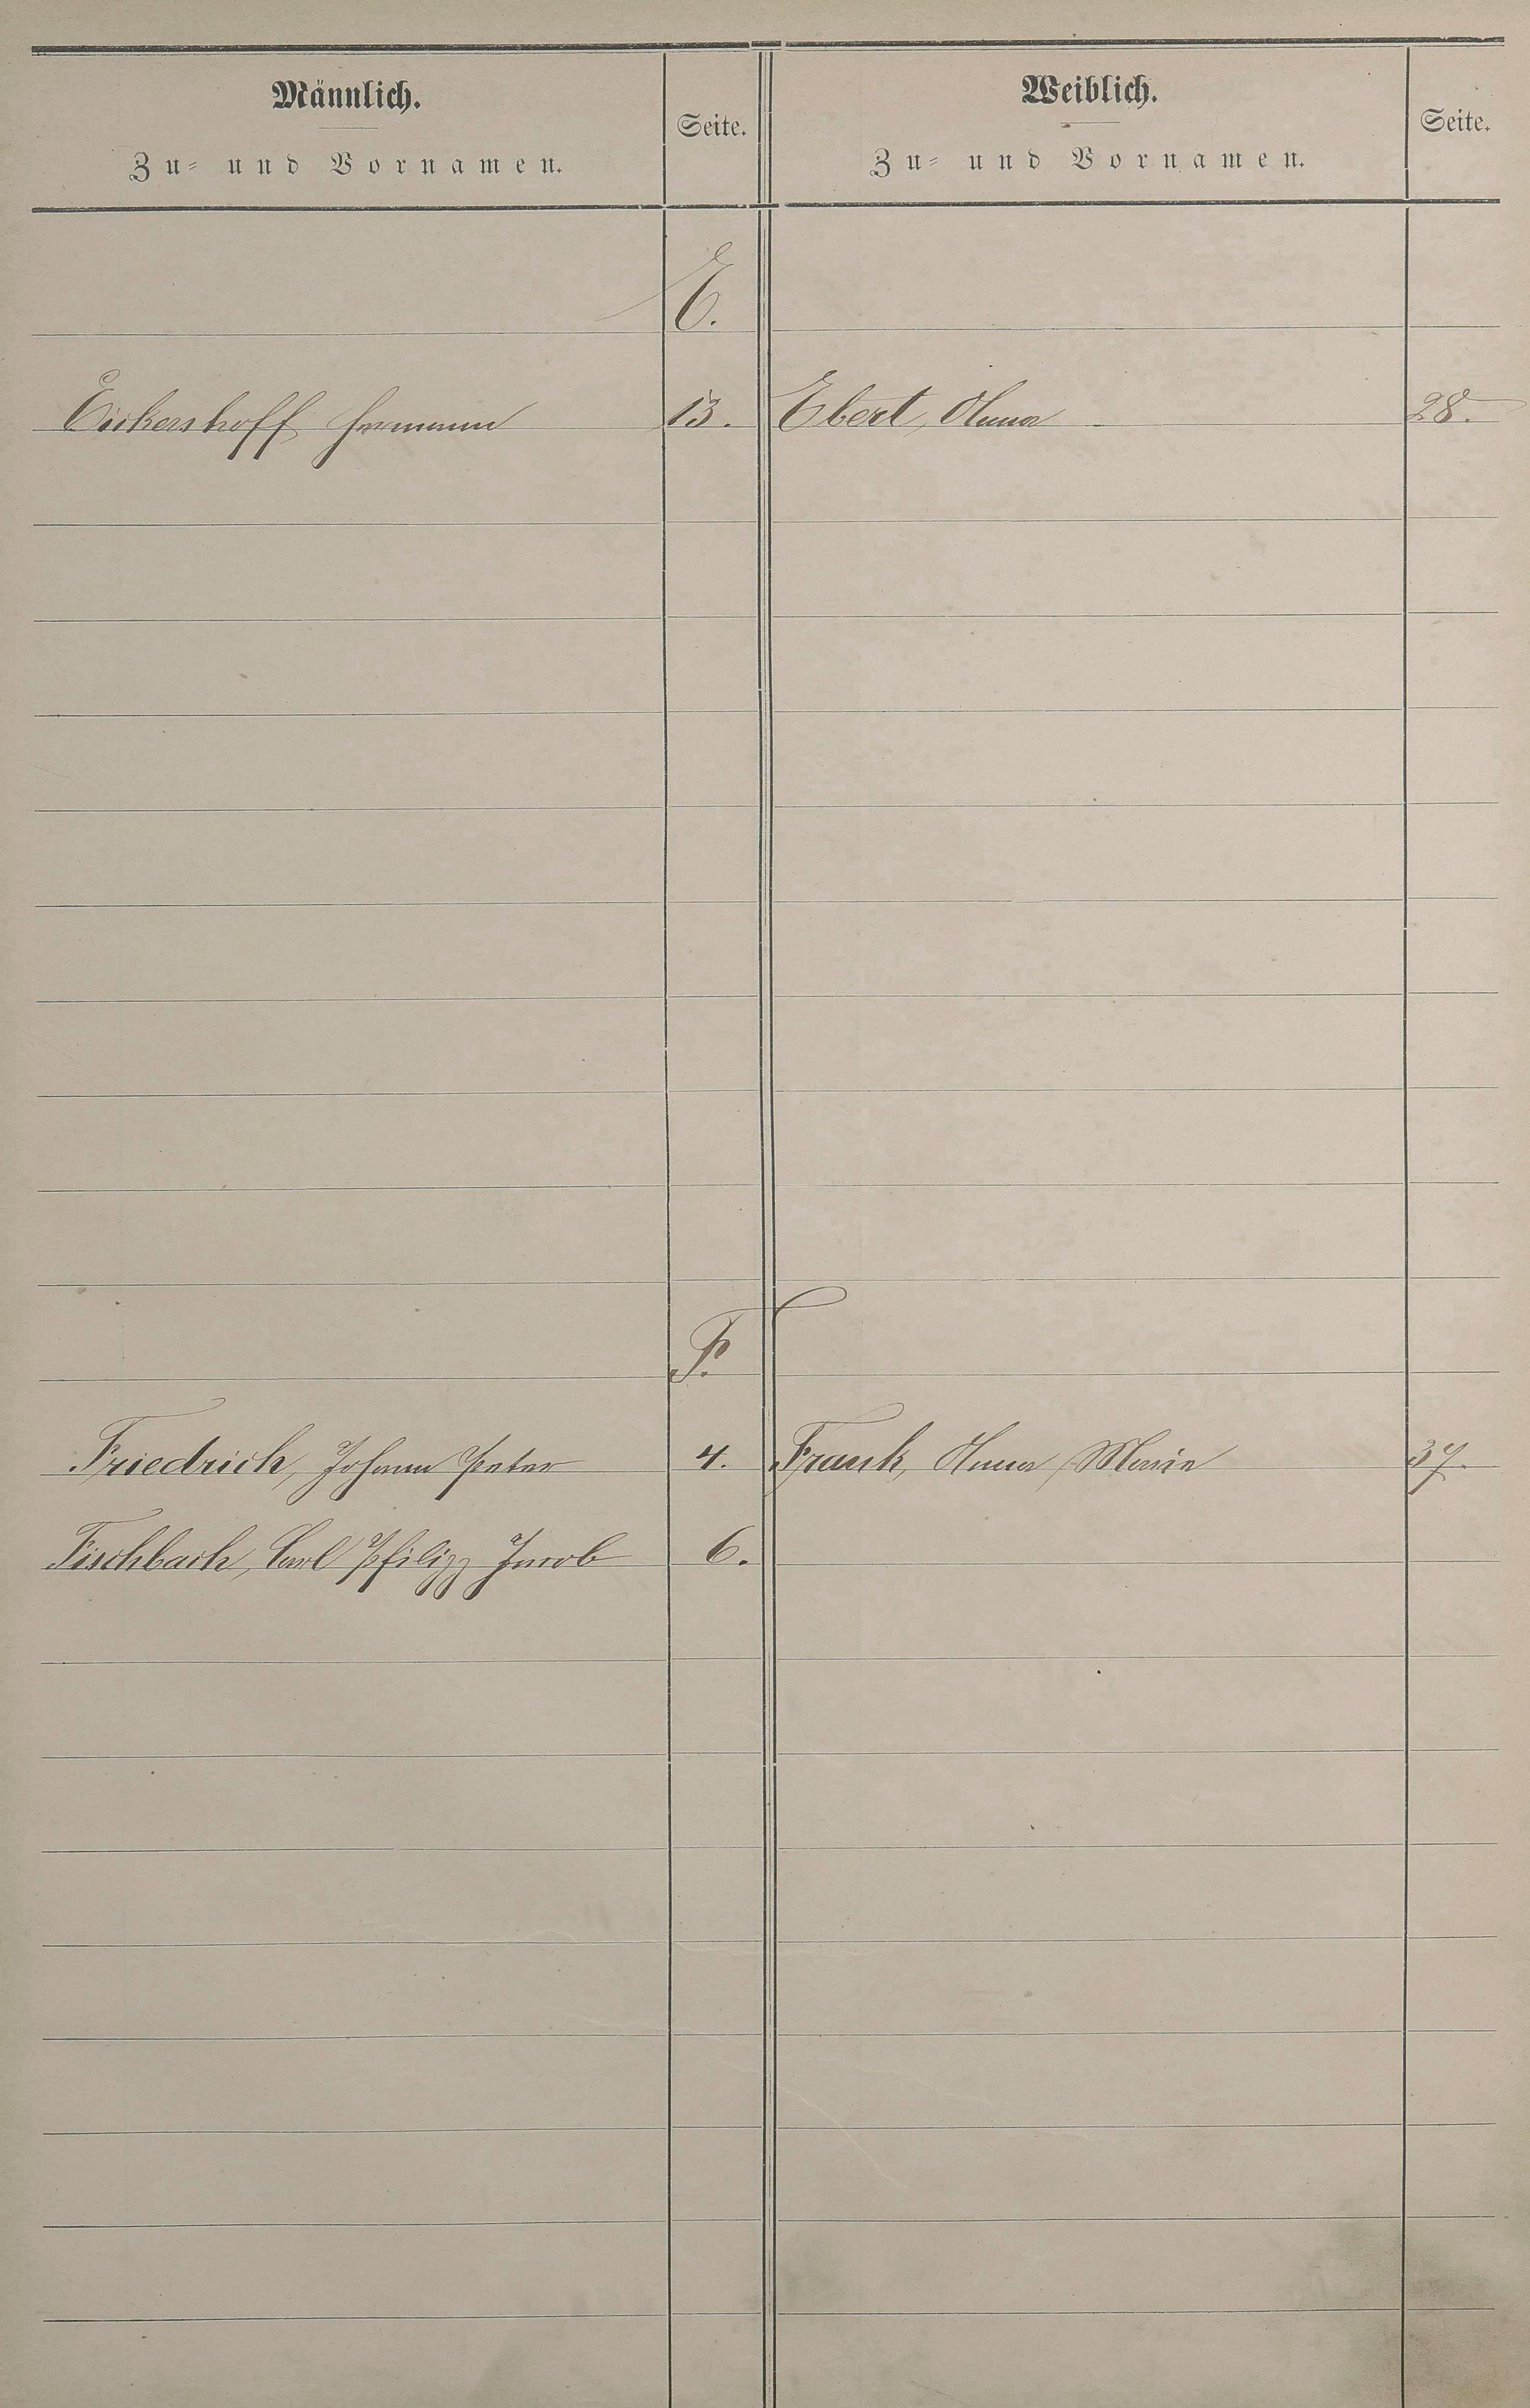 Männlich.
Zu- und Vornamen.
Seite.
Weiblich.
Zu- und Vornamen.
Seite.
E.
Eickershoff Hermann 13. Ebert, Anna 28.
F.
Friedrich, Johann Peter 4. Frank, Anna Marie 37.
Fischbach, Carl Philipp Jacob 6.